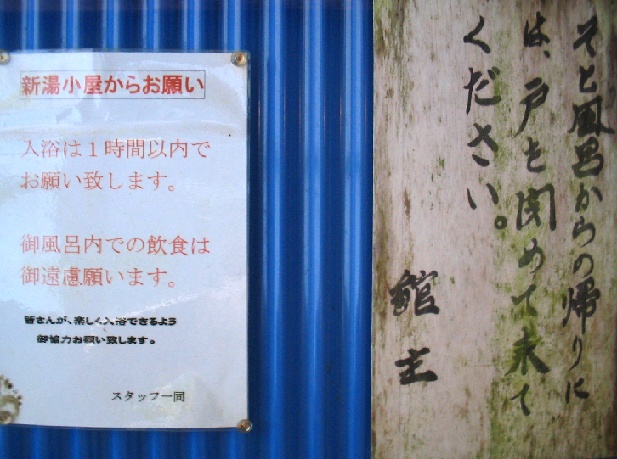 新湯小屋からお願い
入浴は1時間以内で
お願い致します。
御風呂内での飲食は
御遠慮願います。
皆さんが、楽しく入浴できるよう
御協力お願い致します。
スタッフ一同
そと風呂からの帰りに
は、戸を閉めて来て
ください。
館主